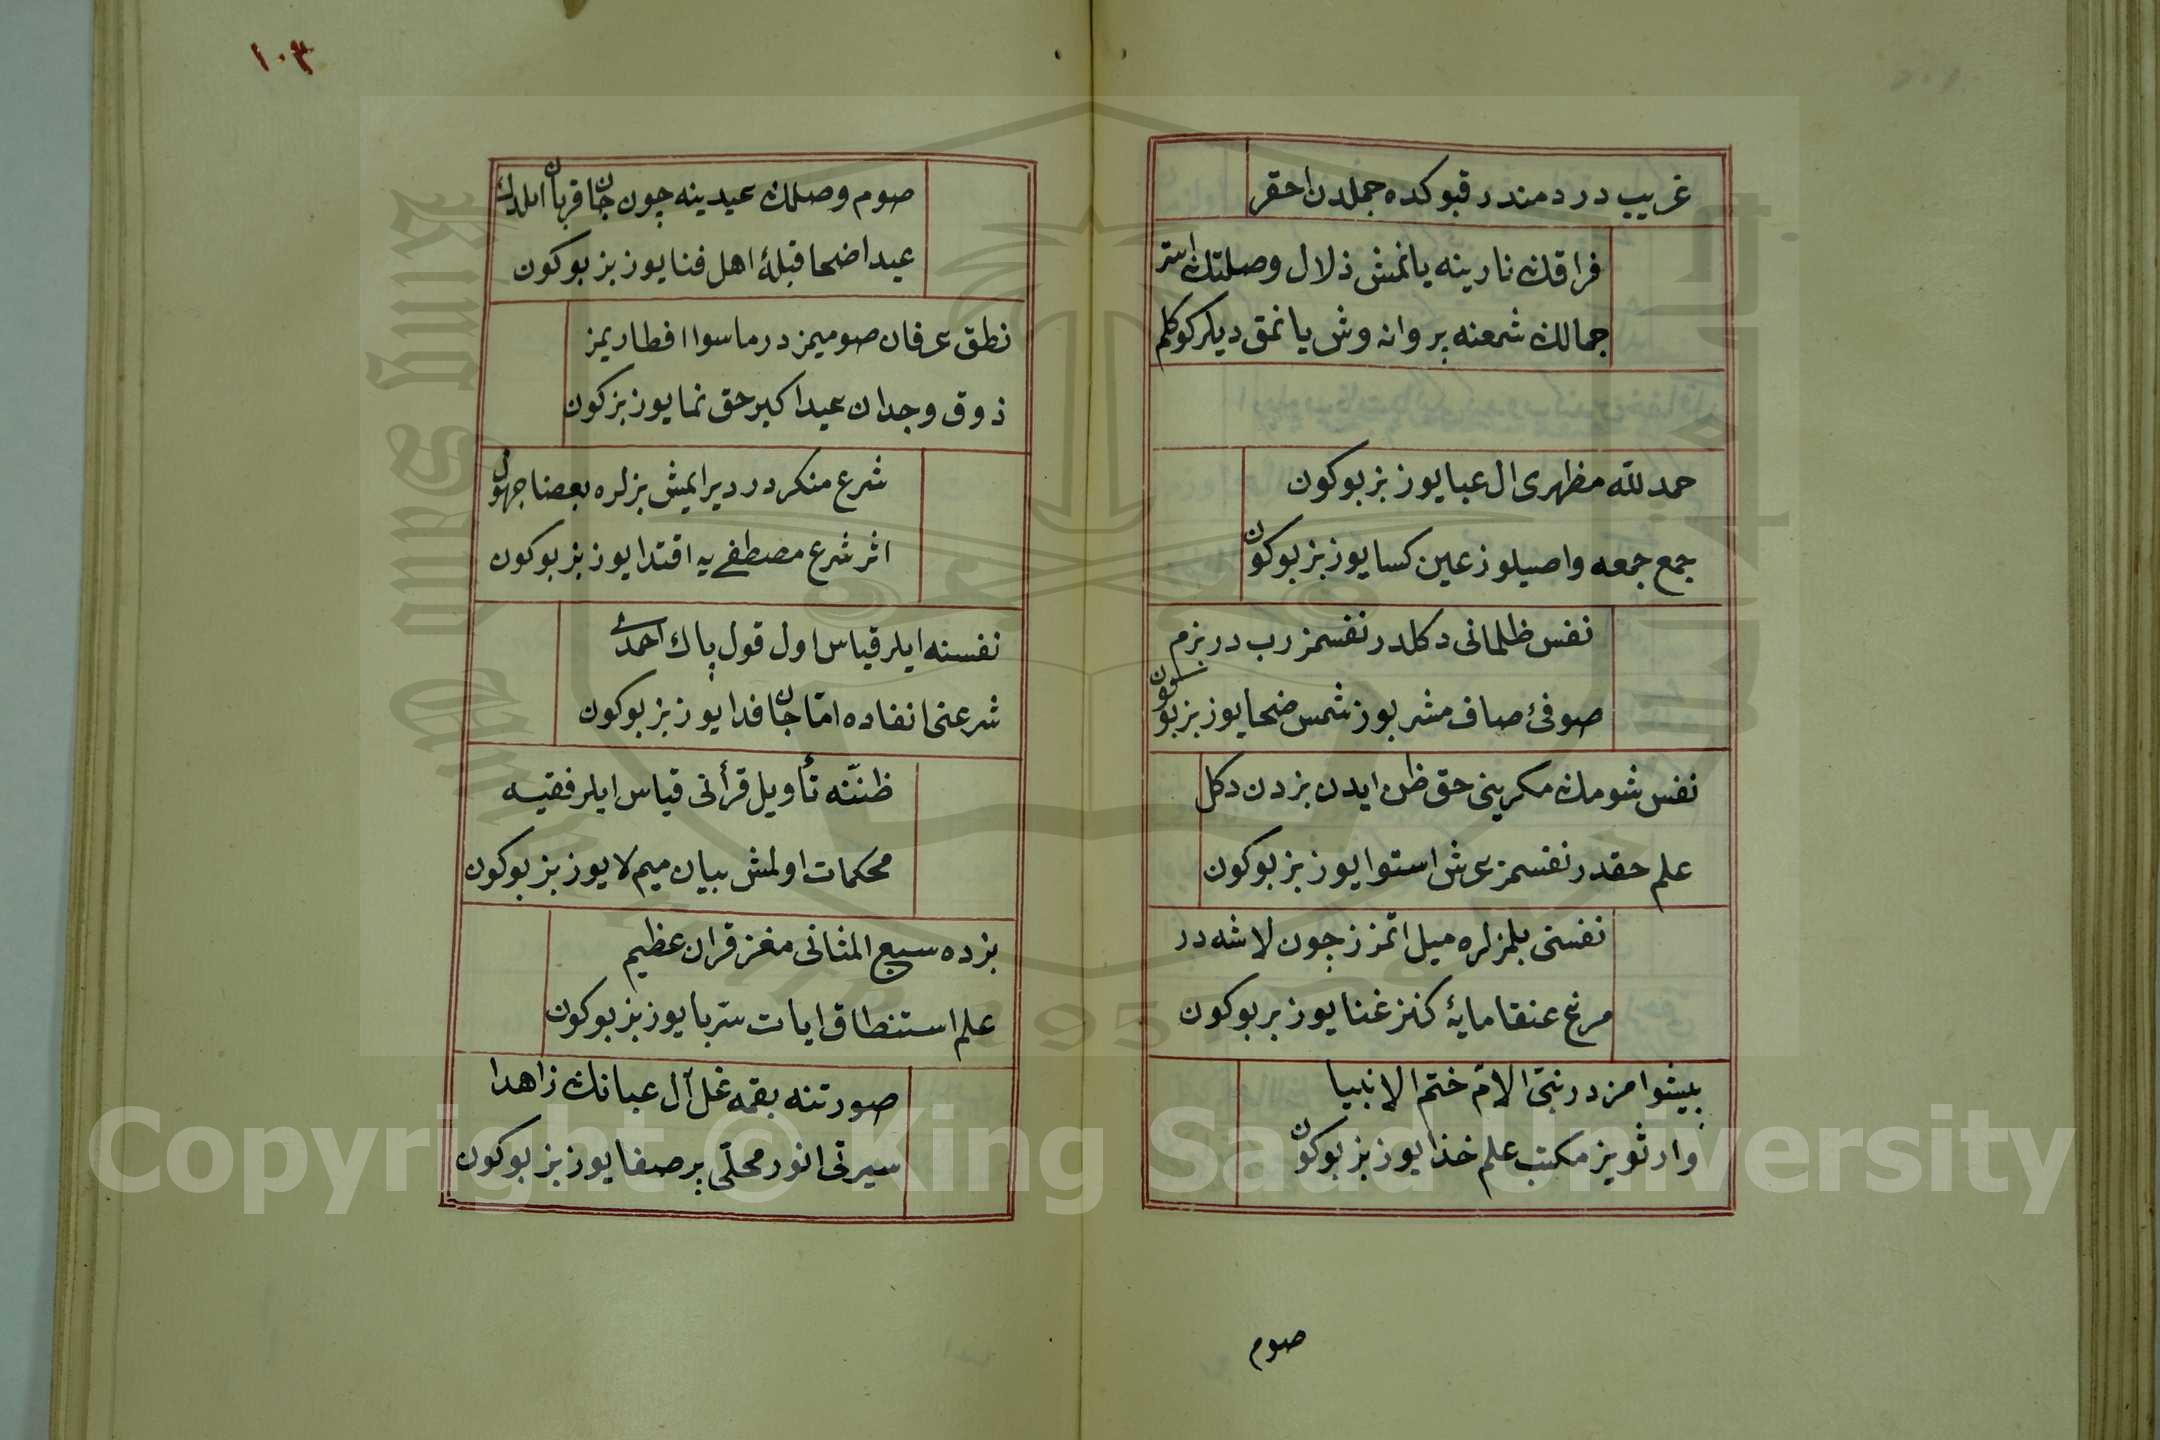 غريب دردمندر قپوكده جملدن احقر
فراقك نارينه يانمش ذلال وصلتك استر
جمالك شمعنه پروانه وش يانمق ديلر كوكلم
حمد لله مظهرى ال عبايوز بز بوكون
جمع جمعه واصيلوز عين كسايوز بز بوكون
نفس ظلمانى دكلدر نفسمز رب در بزم
صوفئ صاف مشربوز شمس ضحايوز بز بوكون
نفس شومك مكرينى حق ظن ايدن بزدن دكل
علم حقدر نفسمز عرش استوايوز بز بوكون
نفسنى بلمزلره ميل اتمزز چون لاشه در
مرغ عنقا مايۀ كنز غنايوز بر بوكون
پيشوامز در نبئ الامّ ختم الانبيا
وارثويز مكتب علم خذايوز بز بوكون
صوم
١٠٣
صوم وصلك عيدينه چون جان قربان ايلدك
عيد اضحا قبلۀ اهل فنايوز بز بوكون
نطق عرفان صوميمز در ماسوا افطاريمز
ذوق وجدان عيد اكبر حق نمايوز بز كون
شرع منكر در ديرايمش بزلره بعضا جهول
اثر شرع مصطفى يه اقتدايوز بز بوكون
نفسنه ايلر قياس اول قول پاك احمدى
شرعنى انفاده امّا جان فدايوز بز بوكون
ظننّه تأويل قرأنى قياس ايلر فقيه
محكمات اولمش بيان ميم لايوز بز بوكون
بزده سبع المثانى مغز قران عظيم
علم استنطاق ايات سرّ بايوز بز بوكون
صورتنه بقمه غل آل عبانك زاهدا
سيرتى انور محلّى پر صفايوز بز بوكون
Copyright © King Saud University